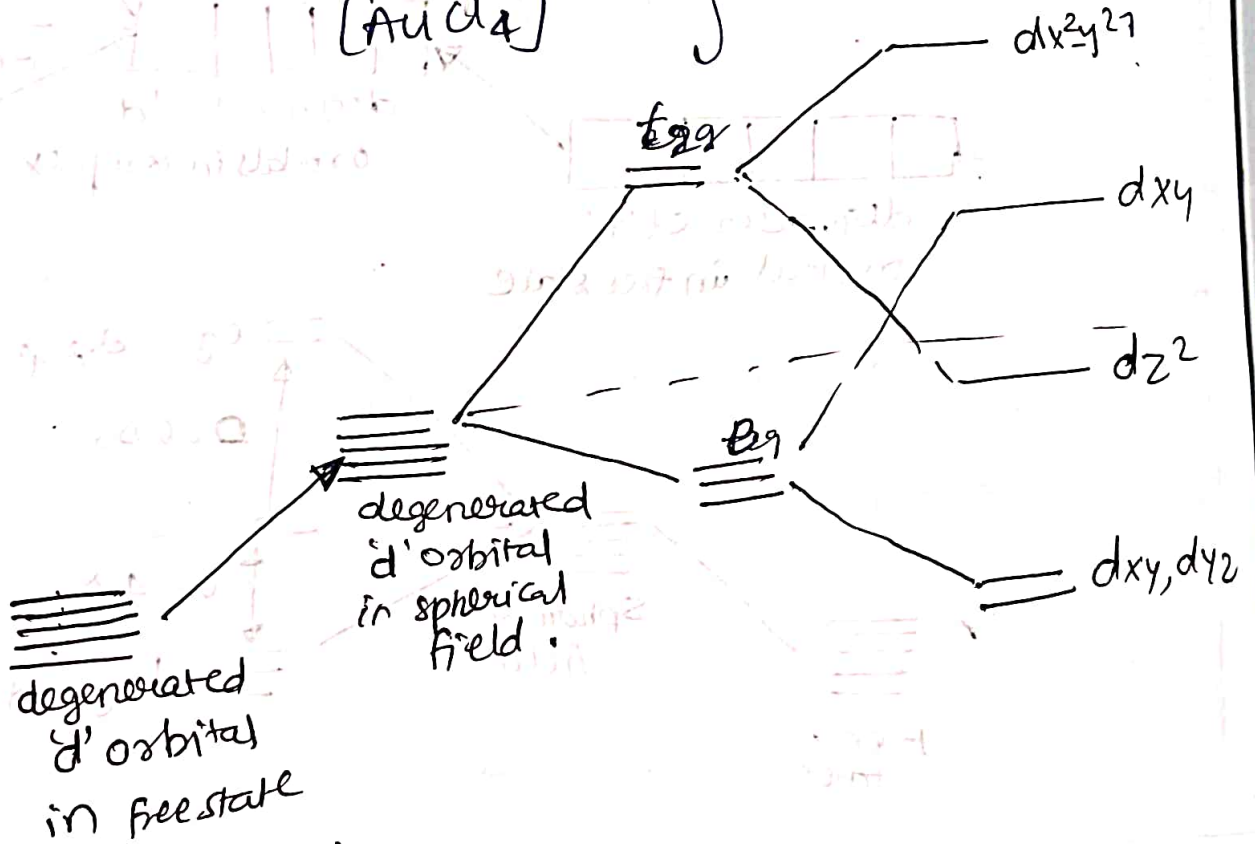 [AuCl4]
dx²-y²
dxy
dz²
dxy, dyz
degenerated
'd' orbital
in spherical
field.
degenerated
'd' orbital
in free state